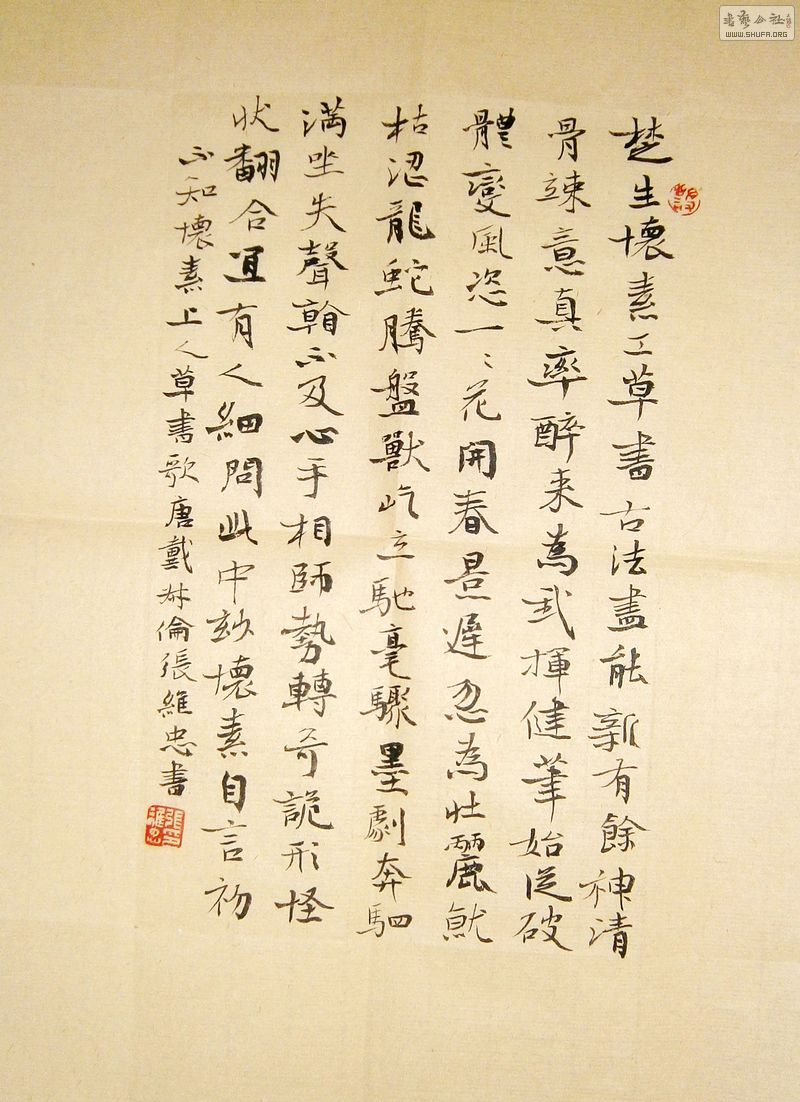 楚生懷素工草書古法盡能新有餘神清
骨竦意真率醉来為我揮健筆始從破
體變風恣一々花開春景遲忽為壯麗就
枯澀龍蛇騰盤獸屹立馳毫驟墨劇奔駟
滿坐失聲看不及心手相師勢轉奇詭形怪
狀翻合宜有人細問此中妙懷素自言初
不知懷素上人草書歌唐戴叔倫張維忠書
書藝公社
WWW.SHUFA.ORG